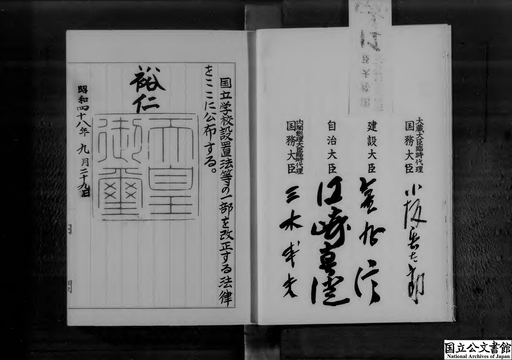 大蔵大臣臨時代理
国務大臣 小坂善太郎
建設大臣 金丸信
自治大臣 江崎真澄
内閣総理大臣臨時代理
国務大臣 三木武夫
国立学校設置法等の一部を改正する法律
をここに公布する。
裕仁
天皇
御璽
昭和四十八年九月二十九日
国立公文書館
National Archives of Japan